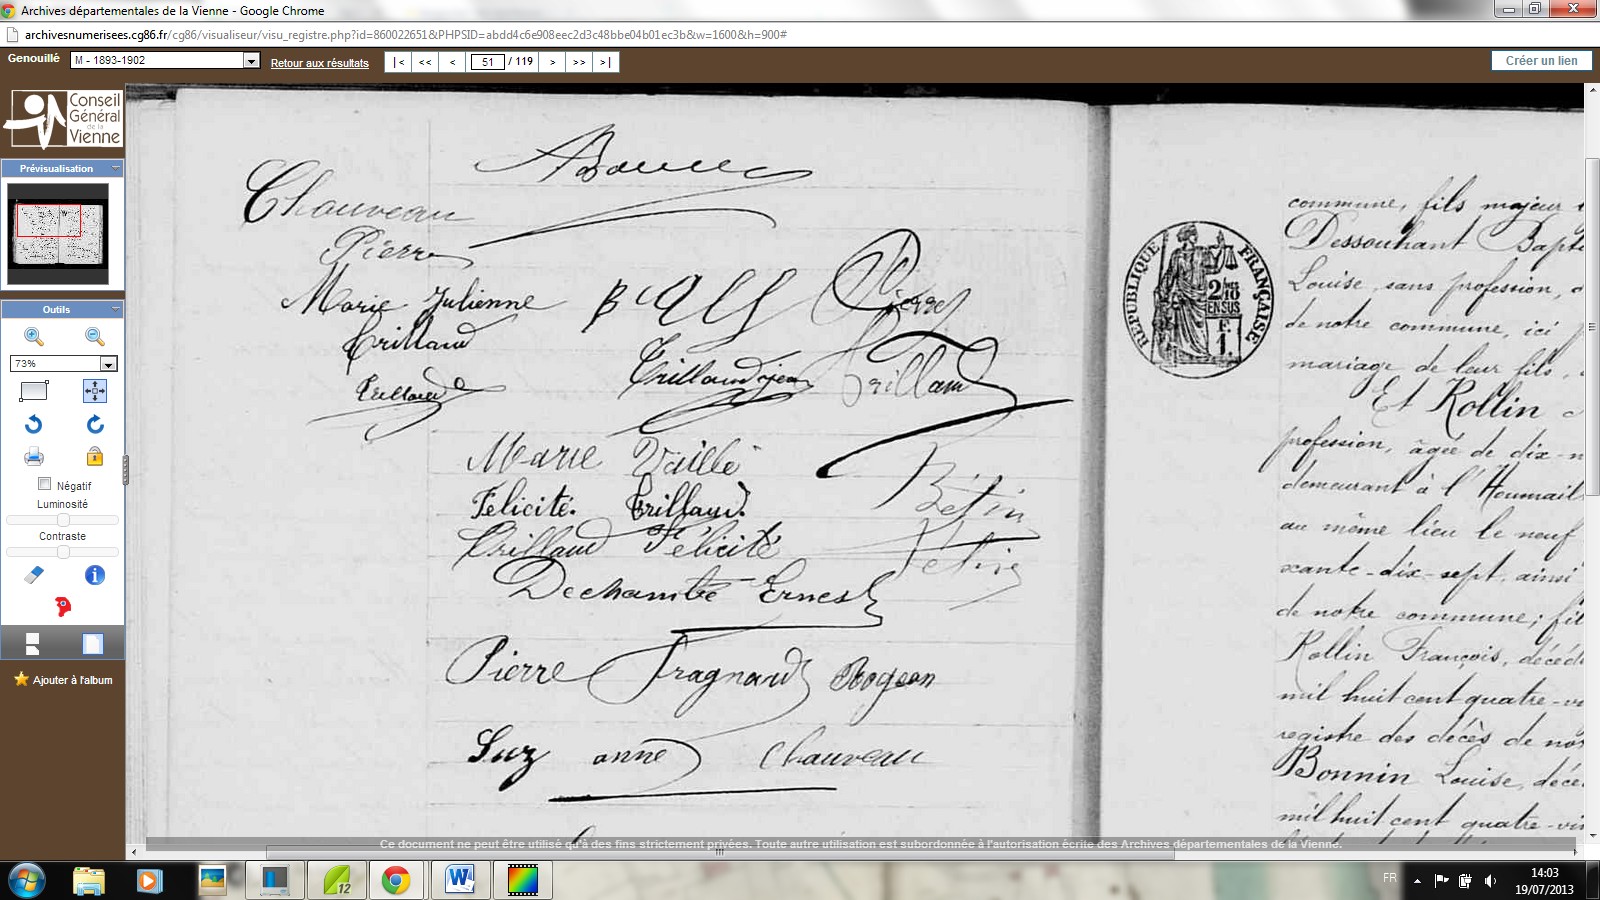 Archives départementales de la Vienne - Google Chrome
archivesnumerisees.cg86.fr/cg86/visualiseur/visu_registre.php?id=860022651&PHPSID=abdd4c6e908eec2d3c48bbe04b01ec3b&w=1600&h=900#
Genouillé M - 1893-1902 Retour aux résultats |< << < 51 / 119 > >> >| Créer un lien
Conseil
Général
de la
Vienne
Prévisualisation
Outils
73%
Négatif
Luminosité
Contraste
Ajouter à l'album
Chauveau
Pierre
Marie Julienne
Trillaud
Trillaud jean Trillaud
Marie Vaillé
Félicité. Trillaud. Bétin
Trillaud Félicité
Dechambre Ernest
Pierre Fragnaud
Suzanne Chauveau
RÉPUBLIQUE FRANÇAISE
2/10
EN SUS
commune, fils majeur
Dessouhant Bapt
Louise, sans profession,
de notre commune, ici
mariage de leur fils,
Et Rollin
profession, âgée de dix-n
demeurant à l'Houmail
au même lieu le neuf
xante-dix-sept, ainsi
de notre commune; fil
Rollin François, décéd
mil huit cent quatre-v
registre des décès de no
Bonnin Louise, décé
mil huit cent quatre-vin
Ce document ne peut être utilisé qu'à des fins strictement privées. Toute autre utilisation est subordonnée à l'autorisation écrite des Archives départementales de la Vienne.
12
FR
14:03
19/07/2013